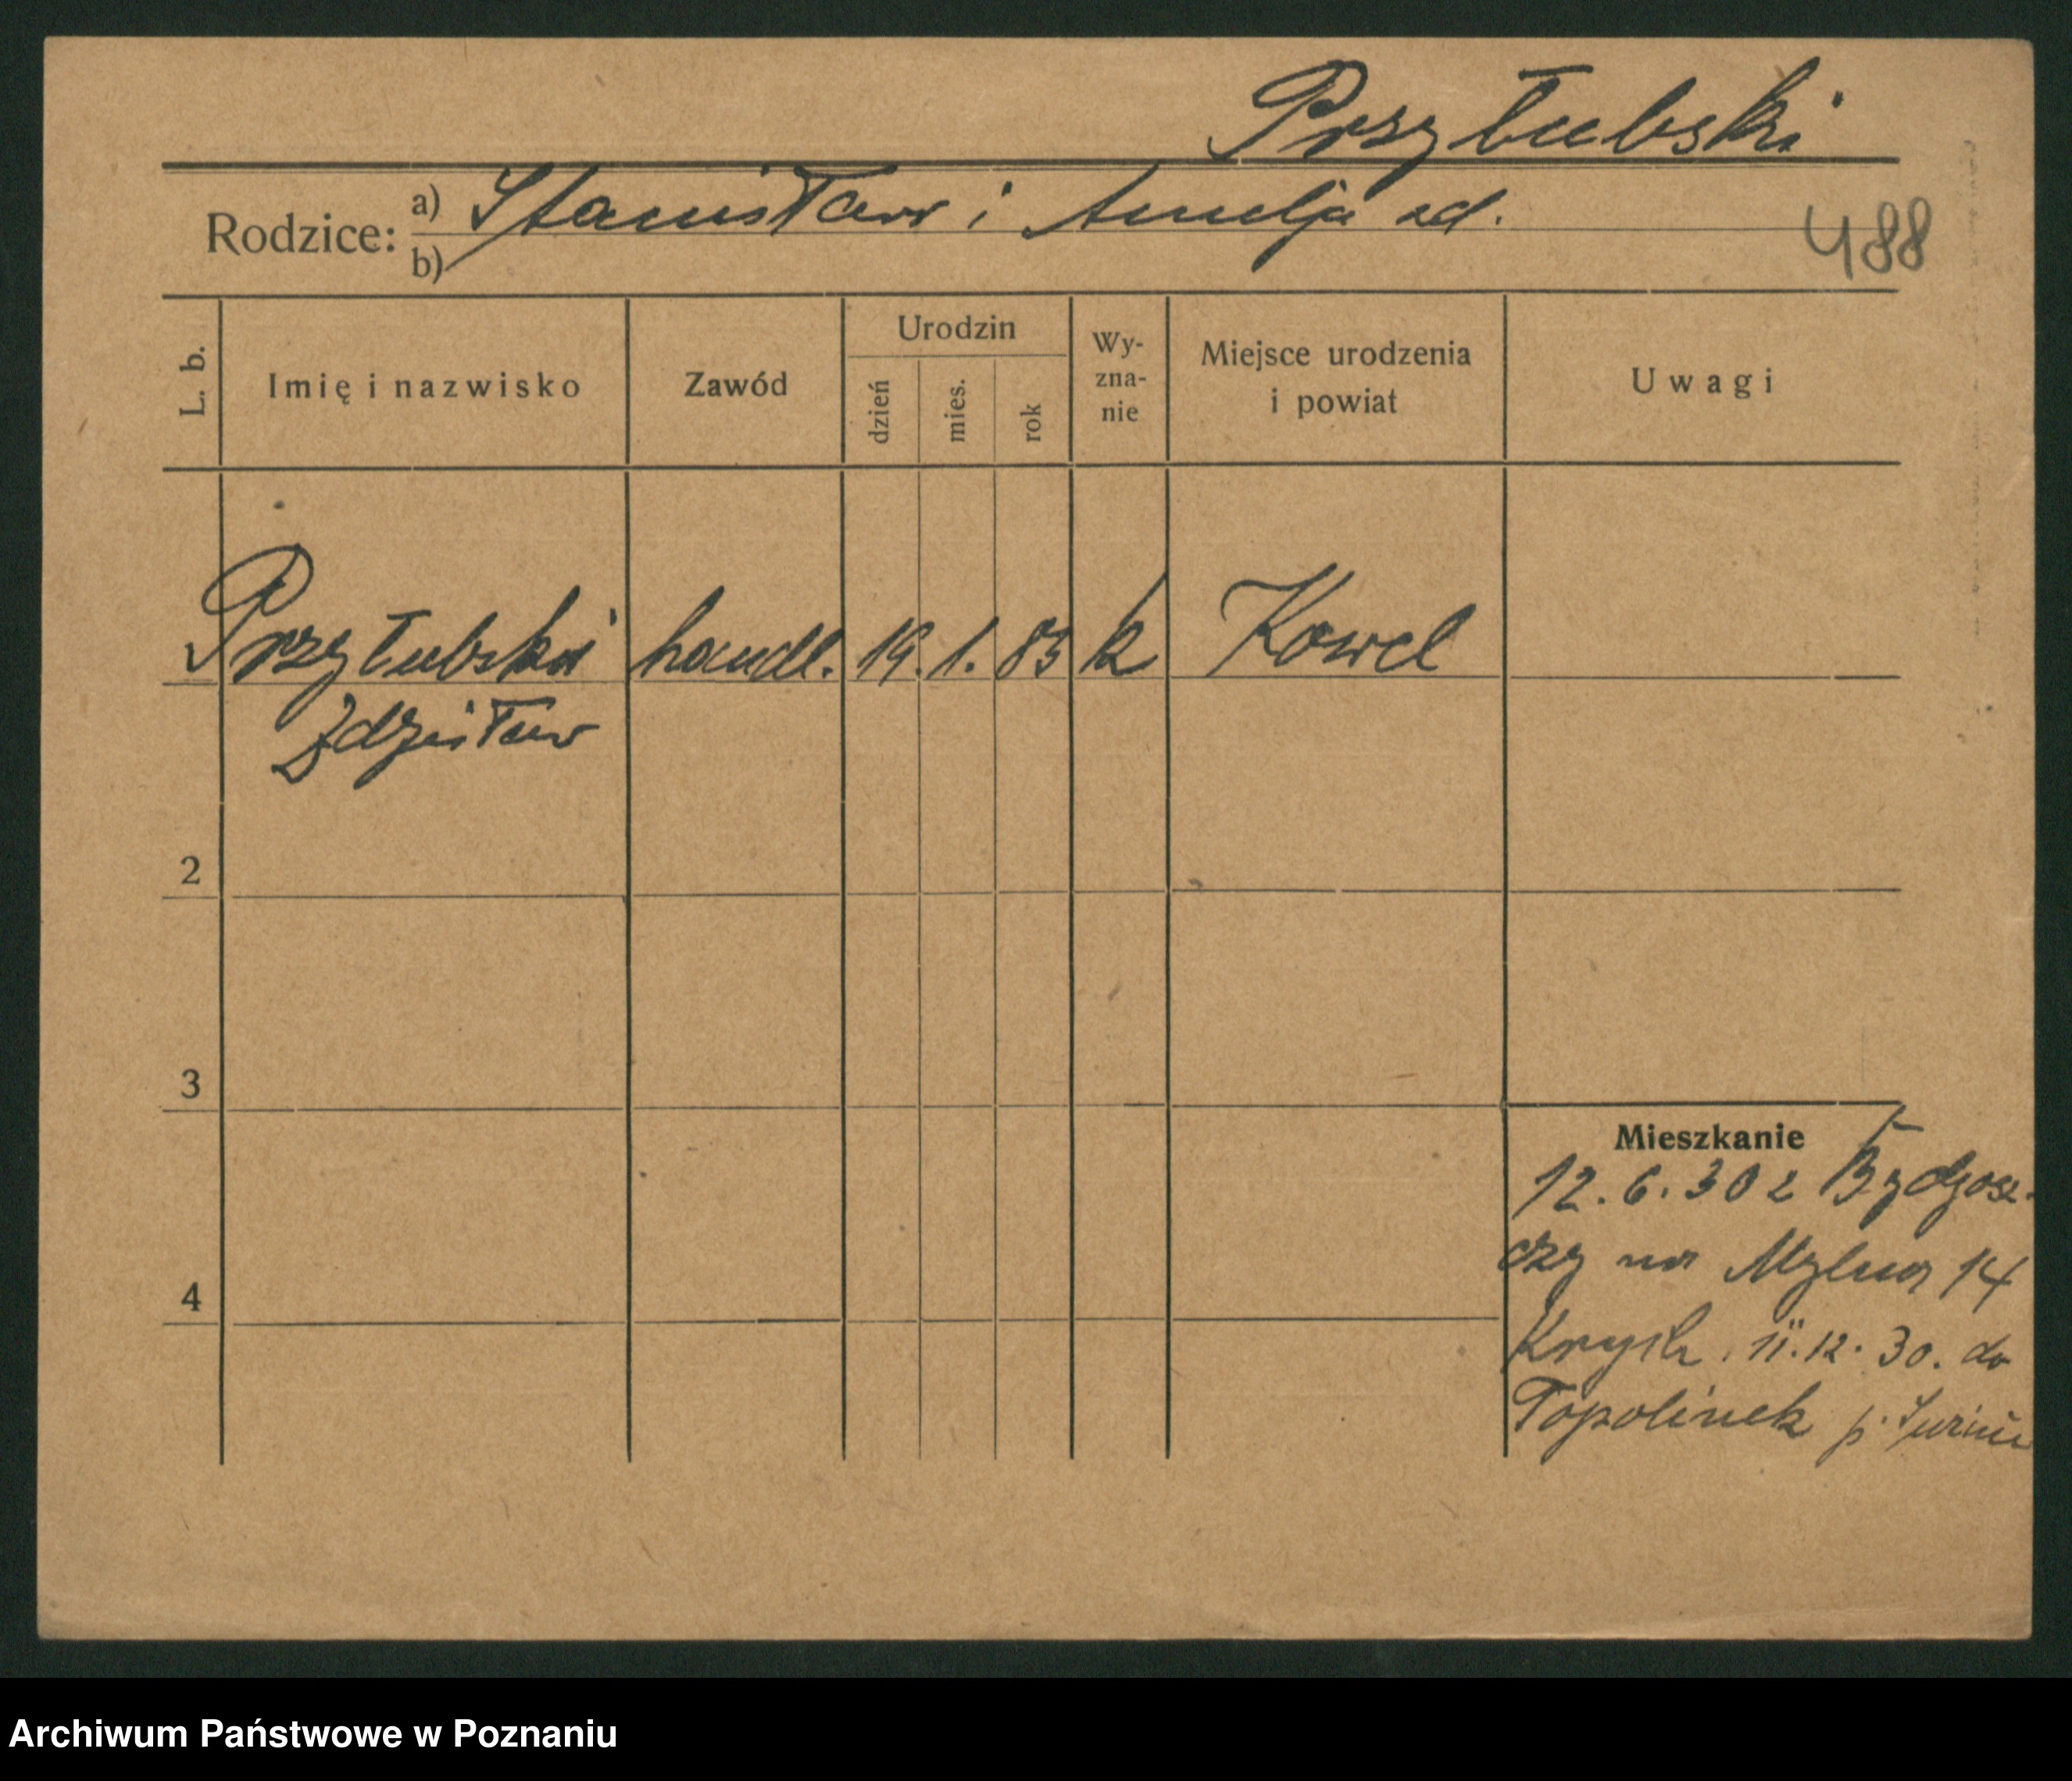 Przyłubski
Rodzice: a) Stanisław i Amelja zd.
b)
488
L. b.
Imię i nazwisko
Zawód
Urodzin
dzień
mies.
rok
Wy-
zna-
nie
Miejsce urodzenia
i powiat
Uwagi
Przyłubski handl. 19. 1. 83 k Kowel
Zdzisław
2
3
4
Mieszkanie
12. 6. 30 z Bydgosz-
czy na Mylna 14
11. 12. 30. do
Topolinek p.
Archiwum Państwowe w Poznaniu